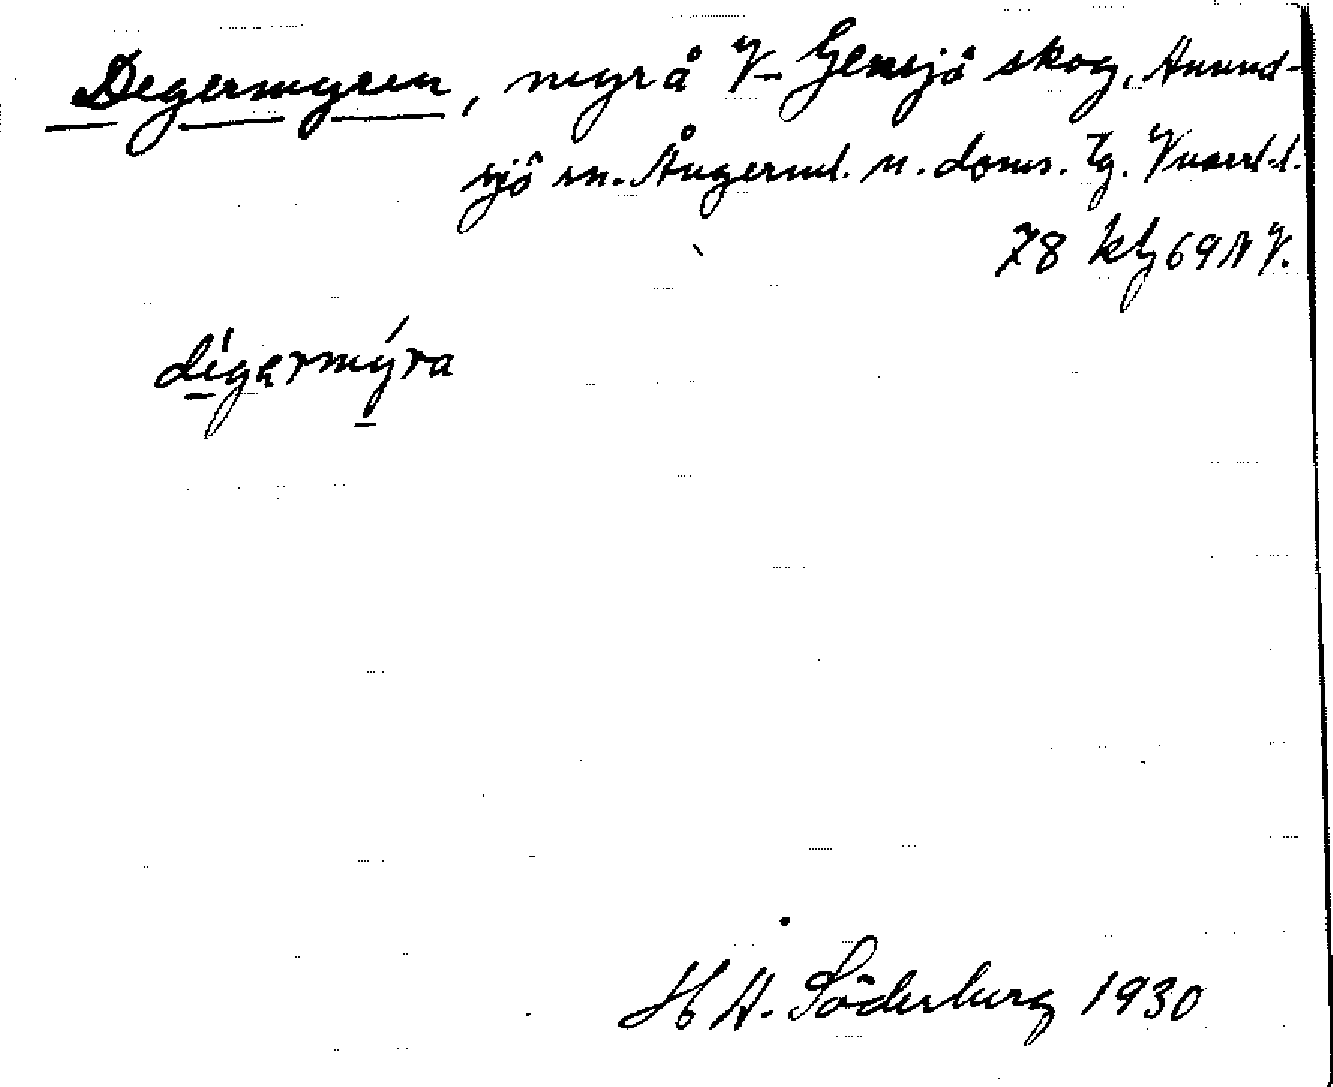 Degermyren, myr å V- Gensjö skog, Anund-
sjö sn. Ångerml. n. doms. Tg.
78 kbl 69 NV.
digermyra
H A. Söderberg 1930